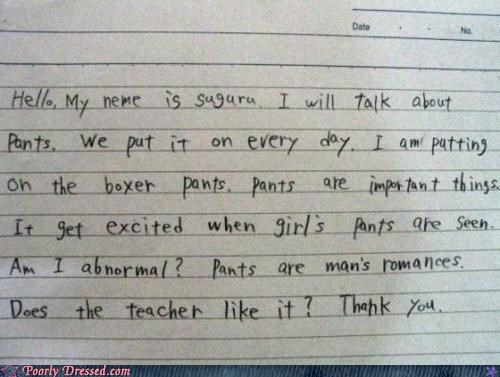 Date . . No.
Hello, My neme is suguru. I will talk about
Pants. We put it on every day. I am putting
on the boxer pants. pants are important things.
It get excited when girl's pants are seen.
Am I abnormal? Pants are man's romances.
Does the teacher like it? Thank you.
Poorly Dressed.com